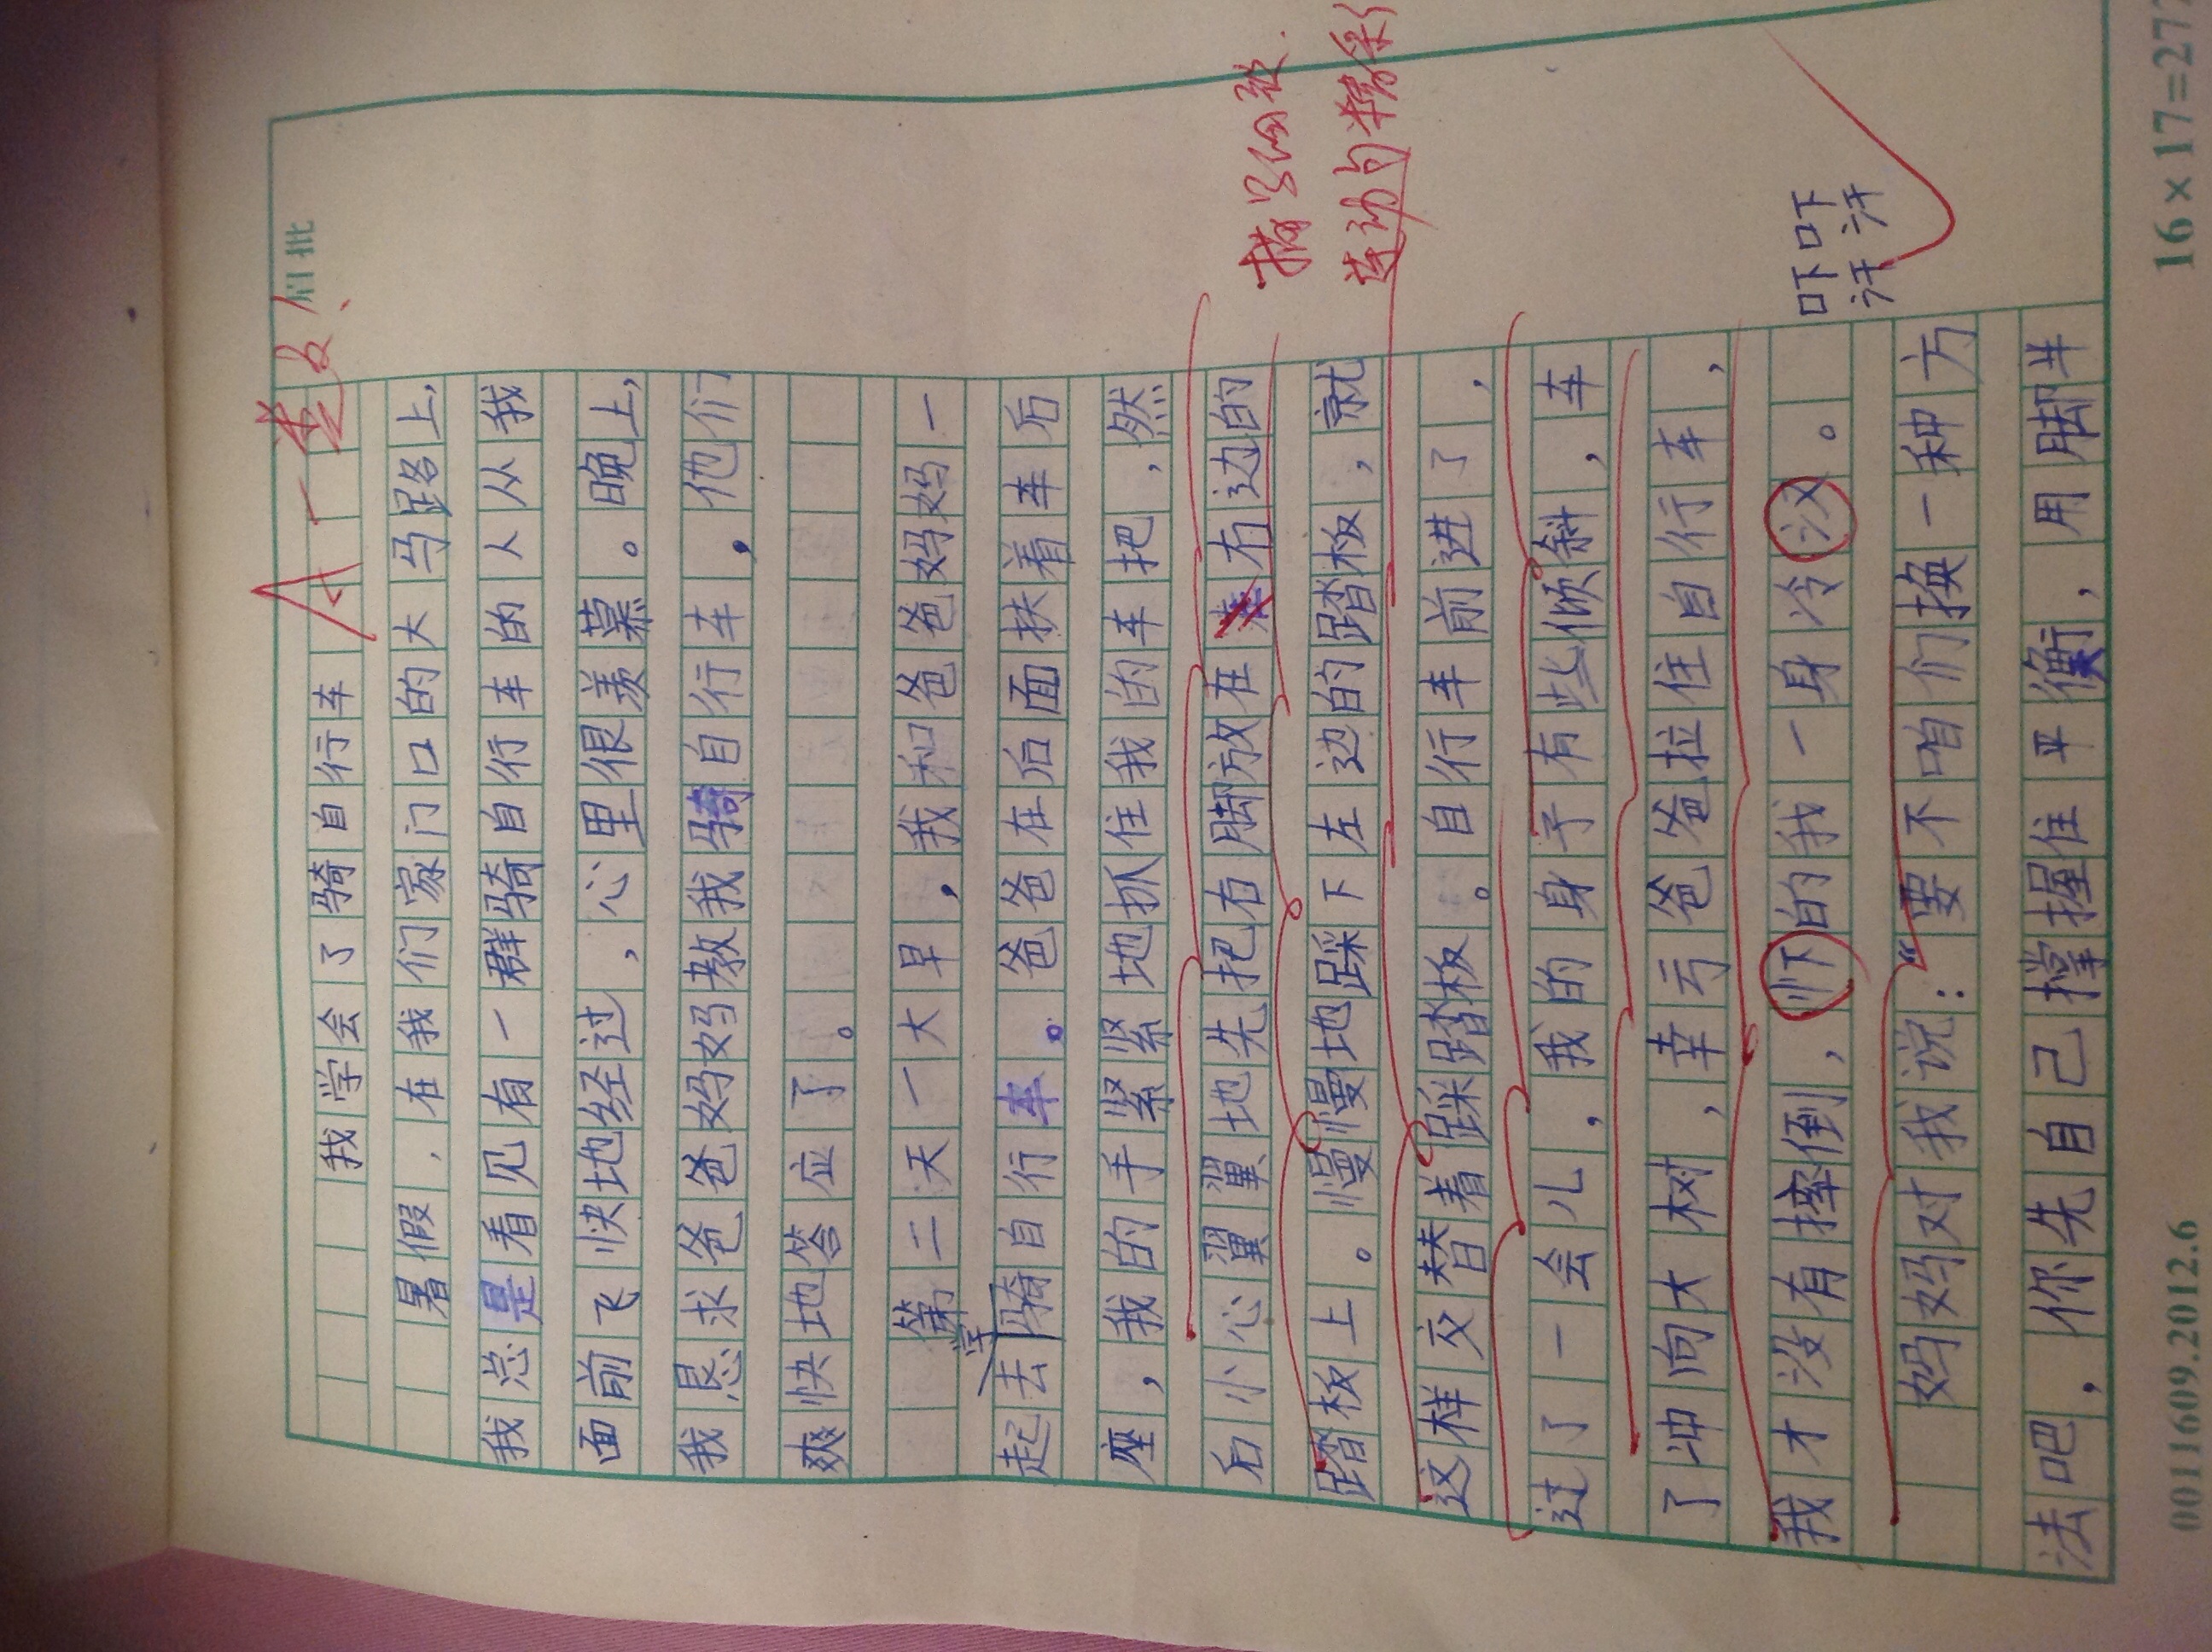 A- 选
眉批
我学会了骑自行车
暑假，在我们家门口的大马路上，
我总是看见有一群骑自行车的人从我
面前飞快地经过，心里很羡慕。晚上，
我恳求爸爸妈妈教我骑自行车，他们
爽快地答应了。
第二天一大早，我和爸爸妈妈一
起去学骑自行车。爸爸在后面扶着车后
座，我的手紧紧地抓住我的车把，然
后小心翼翼地先把右脚放在右边的
踏板上。慢慢地踩下左边的踏板，就
这样交替着踩踏板。自行车前进了，
过了一会儿，我的身子有些倾斜，车
了冲向大树，幸亏爸爸拉住自行车，
我才没有摔倒，吓的我一身冷汉。
妈妈对我说：“要不咱们换一种方
法吧，你先自己掌握住平衡，用脚半
描写细致.
连动句精彩
吓吓
汗汗
0011609.2012.6
16×17=27